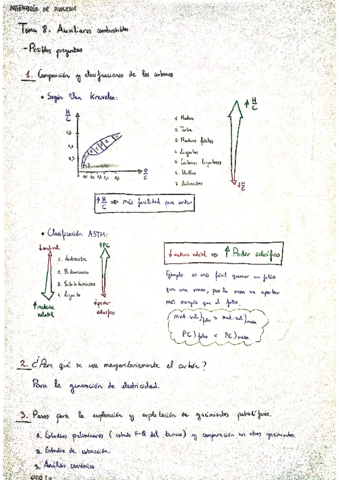 INGENIERÍA DE PROCESOS
Tema 8. Auxiliares combustibles
- Posibles preguntas
1. Composición y clasificaciones de los carbones
• Según Van Krevelen:
H/C
O/C
1. Madera
2. Turba
3. Madera fósil
4. Lignitos
5. Carbones lignitosos
6. Hullas
7. Antracitas
↑ H/C
↓ H/C
↑ H/C ⇒ más facilidad para arder
• Clasificación ASTM:
↑ PC
1. Antracitas
2. Bituminosos
3. Subbituminosos
4. Lignito
↑ materia volátil
↓ poder calorífico
↓ materia volátil ⇒ ↑ Poder calorífico
Ejemplo: es más fácil quemar un folio
que una mesa, pero la mesa va aportar
más energía que el folio.
mat. vol) folio > mat. vol) mesa
PC) folio < PC) mesa
2. ¿Para qué se usa mayoritariamente el carbón?
Para la generación de electricidad.
3. Pasos para la exploración y explotación de yacimientos petrolíferos.
1. Estudios preliminares ( estudio F-Q del terreno) y comparación con otros yacimientos.
2. Estudios de extracción.
3. Análisis económico